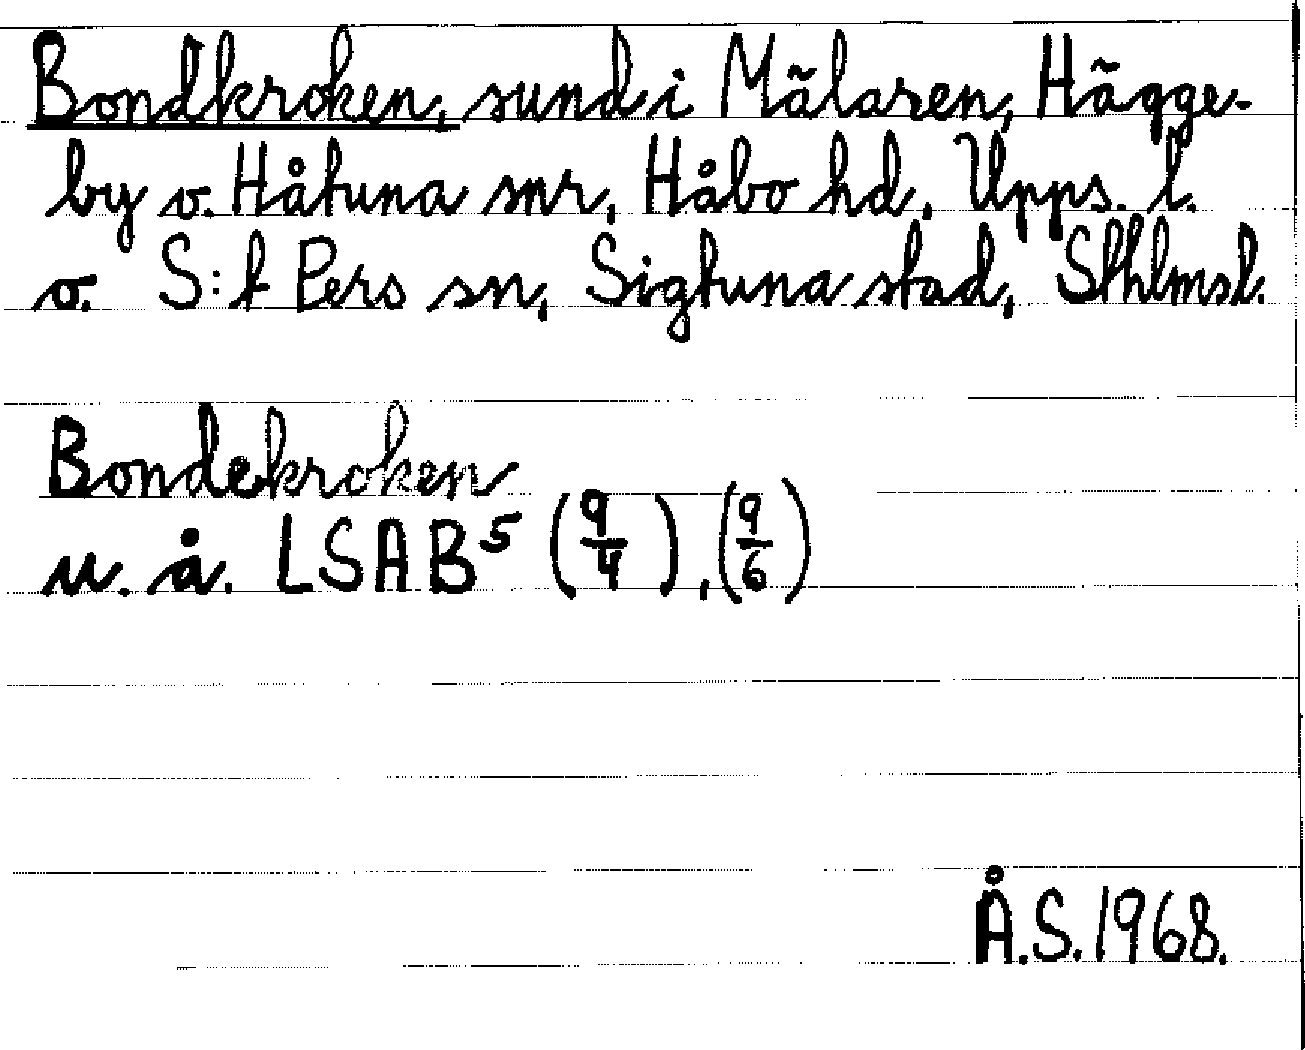 Bondkroken, sund i Mälaren, Hägge-
by o. Håtuna snr, Håbo hd, Upps. l.
o. S:t Pers sn, Sigtuna stad, Sthlmsl.
Bondekroken
u. å. LSA B⁵ (9/4), (9/6)
Å.S. 1968.